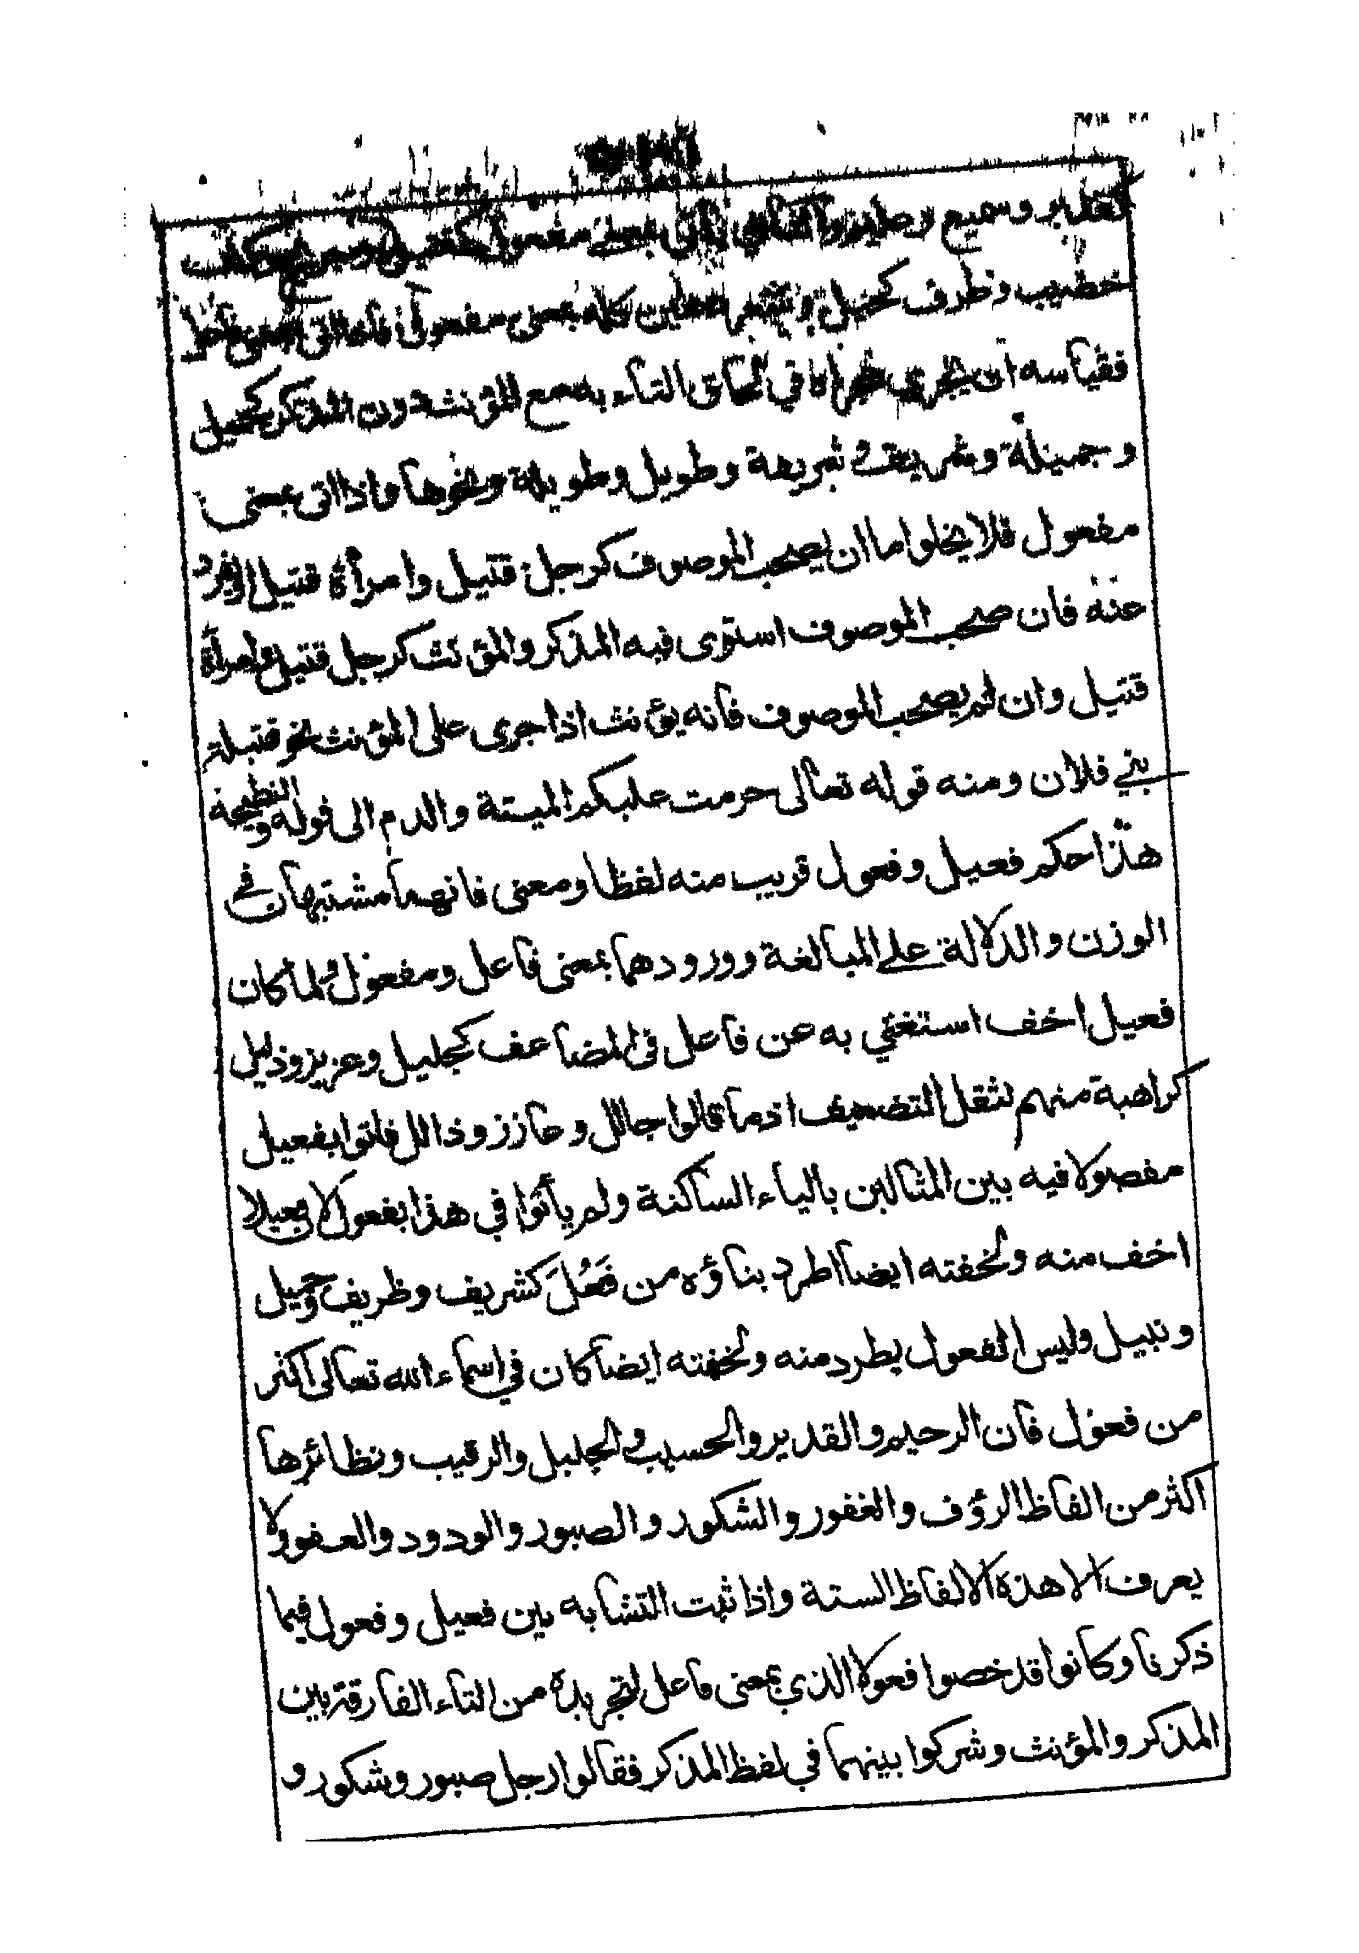 كقدير وسميع وعليم والثاني يأتي بمعنى مفعول كقتيل وجريح وكف
خضيب وطرف كحيل وشعر دهين كله بمعنى مفعول فاذا اتى بمعنى فاعل
فقياسه ان يجرى مجراه في الحاق التاء به مع المؤنث دون المذكر كجميل
وجميلة وشريف وشريفة وطويل وطويلة ونحوها واذا اتى بمعنى
مفعول فلا يخلوا اما ان يصحب الموصوف كرجل قتيل وامرأة قتيل او يفرد
عنه فان صحب الموصوف استوى فيه المذكر والمؤنث كرجل قتيل وامرأة
قتيل وان لم يصحب الموصوف فانه يؤنث اذا جرى على المؤنث نحو قتيلة
بني فلان ومنه قوله تعالى حرمت عليكم الميتة والدم الى قوله والنطيحة
هذا حكم فعيل وفعول قريب منه لفظا ومعنى فانهما مشتبهان في
الوزن والدلالة على المبالغة وورودهما بمعنى فاعل ومفعول ولما كان
فعيل اخف استغني به عن فاعل في المضاعف كجليل وعزيز وذليل
كراهية منهم لثقل التضعيف اذ ما قالوا جالل وعازز وذالل فاتوا بفعيل
مفصولا فيه بين المثالين بالياء الساكنة ولم يأتوا في هذا بفعول لا فعيلا
اخف منه ولخفته ايضا اطرد بناؤه من فَعُلَ كشريف وظريف وجميل
ونبيل وليس لفعول يطرد منه ولخفته ايضا كان في اسماء الله تعالى اكثر
من فعول فان الرحيم والقدير والحسيب والجليل والرقيب ونظائرها
اكثر من الفاظ الرؤف والغفور والشكور والصبور والودود والعفو ولا
يعرف الا هذه الالفاظ الستة واذا ثبت التشابه بين فعيل وفعول فيما
ذكرنا وكانوا قد خصوا فعولا الذي بمعنى فاعل لتجريده من التاء الفارقة بين
المذكر والمؤنث وشركوا بينهما في لفظ المذكر فقالوا رجل صبور وشكور و